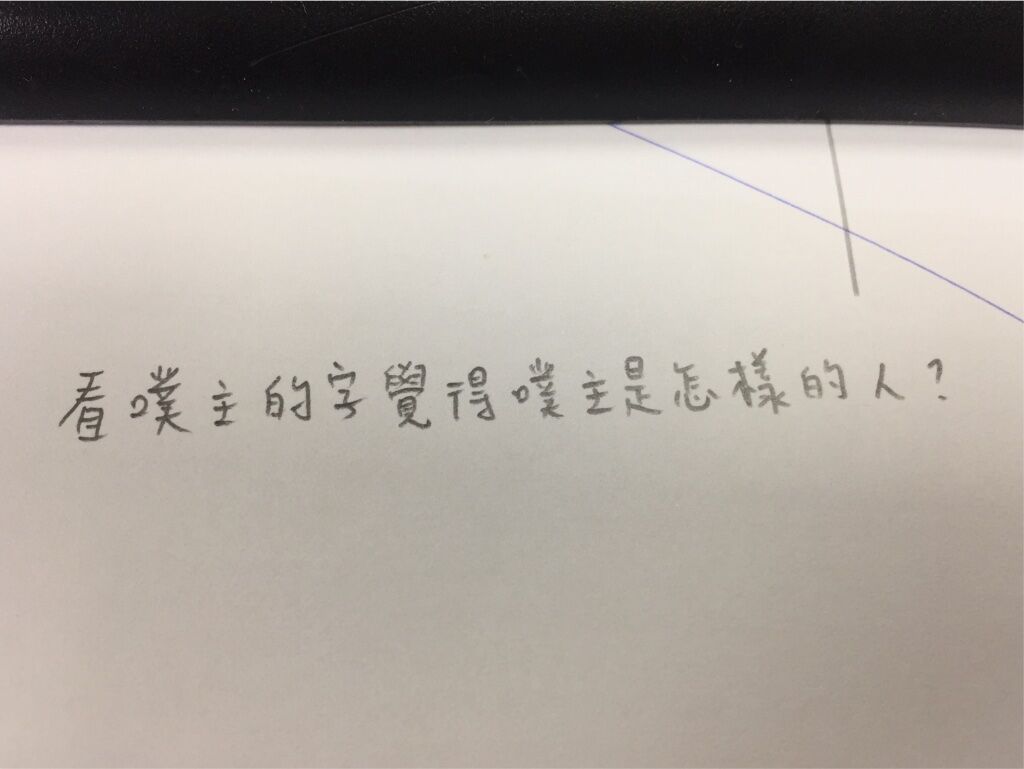 看噗主的字覺得噗主是怎樣的人?